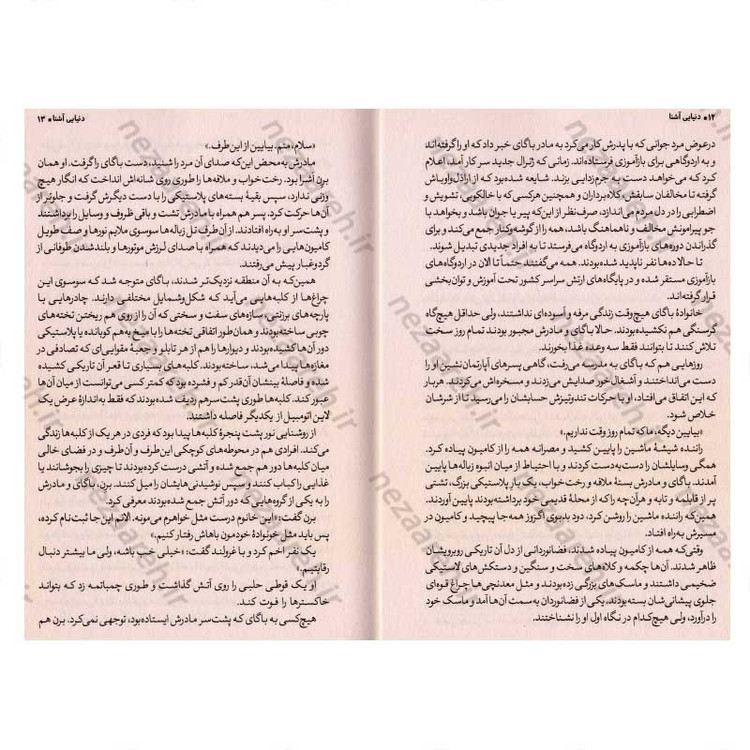 ۱۲ • دنیایی آشنا
در عوض مرد جوانی که با پدرش کار می‌کرد به مادر باگای خبر داد که او را گرفته‌اند
و به اردوگاهی برای بازآموزی فرستاده‌اند. زمانی که ژنرال جدید سر کار آمد، اعلام
کرد که می‌خواهد دست به جرم‌زدایی بزند. شایعه شده بود که از اراذل واوباش
گرفته تا مخالفان سابقش، کلاه‌برداران و همچنین هرکسی که با خالکوبی، تشویش و
اضطرابی را در دل مردم می‌اندازد، صرف‌نظر از این‌که پیر یا جوان باشد و بخواهد با
جو پیرامونش مخالف و ناهماهنگ باشد، همه را از گوشه‌وکنار جمع می‌کند و برای
گذراندن دوره‌های بازآموزی به اردوگاه می‌فرستد تا به افراد جدیدی تبدیل شوند.
تا حالا ده‌ها نفر ناپدید شده بودند. همه می‌گفتند حتماً تا الان در اردوگاه‌های
بازآموزی مستقر شده و در پایگاه‌های ارتش سراسر کشور تحت آموزش و توان‌بخشی
قرار گرفته‌اند.
خانوادهٔ باگای هیچ‌وقت زندگی مرفه و آسوده‌ای نداشتند، ولی حداقل هیچ‌گاه
گرسنگی هم نکشیده بودند. حالا باگای و مادرش مجبور بودند تمام روز سخت
تلاش کنند تا بتوانند فقط سه وعده غذا بخورند.
روزهایی هم که باگای به مدرسه می‌رفت، گاهی پسرهای آپارتمان‌نشین او را
دست می‌انداختند و آشغال خور صدایش می‌زدند و مسخره‌اش می‌کردند. هربار
که این اتفاق می‌افتاد، او با حرکات تندوتیزش حسابشان را می‌رسید تا از شرشان
خلاص شود.
«بیایین دیگه، ما که تمام روز وقت نداریم.»
راننده شیشهٔ ماشین را پایین کشید و مصرانه همه را از کامیون پیاده کرد.
همگی وسایلشان را دست‌به‌دست کردند و با احتیاط از میان انبوه زباله‌ها پایین
آمدند. باگای و مادرش بستهٔ ملافه و رخت خواب، یک بار پلاستیکی بزرگ، تشتی
پر از قابلمه و تابه و هرآن‌چه را که از محلهٔ قدیمی خود برداشته بودند پایین آوردند.
همین‌که راننده ماشین را روشن کرد، دود بدبوی اگزوز همه‌جا پیچید و کامیون در
مسیرش به راه افتاد.
وقتی‌که همه از کامیون پیاده شدند، فضانوردانی از دل آن تاریکی روبرویشان
ظاهر شدند. آن‌ها چکمه و کلاه‌های سخت و سنگین و دستکش‌های لاستیکی
ضخیمی داشتند و ماسک‌های بزرگی زده بودند و مثل معدنچی‌ها چراغ قوه‌ای
جلوی پیشانی‌شان بسته بودند. یکی از فضانوردان به سمت آن‌ها آمد و ماسک خود
را درآورد، ولی هیچ‌کدام در نگاه اول او را نشناختند.
دنیایی آشنا • ۱۳
«سلام، منم. بیایین از این طرف.»
مادرش به محض این‌که صدای آن مرد را شنید، دست باگای را گرفت. او همان
برن آشرا بود. رخت‌خواب و ملافه‌ها را طوری روی شانه‌اش انداخت که انگار هیچ
وزنی ندارد، سپس بقیهٔ بسته‌های پلاستیکی را با دست دیگرش گرفت و جلوتر از
آن‌ها حرکت کرد. پسر هم همراه با مادرش تشت و باقی ظروف و وسایل را برداشتند
و پشت‌سر او به راه افتادند. از آن طرف تل زباله‌ها سوسوی ملایم نورها و صف طویل
کامیون‌هایی را می‌دیدند که همراه با صدای لرزش موتورها و بلند شدن طوفانی از
گردوغبار پیش می‌رفتند.
همین‌که به آن منطقه نزدیک‌تر شدند، باگای متوجه شد که سوسوی این
چراغ‌ها از کلبه‌هایی می‌آید که شکل‌وشمایل مختلفی دارند. چادرهایی با
پارچه‌های برزنتی، سازه‌های سفت و سختی که آن را از روی هم ریختن تخته‌های
چوبی ساخته بودند و همان‌طور اتفاقی تخته‌ها را با میخ به هم کوبانده یا پلاستیکی
دور آن‌ها کشیده بودند و دیوارها را هم از هر تابلو و جعبهٔ مقوایی‌ای که تصادفی در
مغازه‌ها پیدا می‌شد، ساخته بودند. کلبه‌های بسیاری تا قعر آن تاریکی کشیده
شده و فاصلهٔ بینشان آن‌قدر کم و فشرده بود که کمتر کسی می‌توانست از میان آن‌ها
عبور کند. کلبه‌ها طوری پشت‌سرهم ردیف شده بودند که فقط به اندازهٔ عرض یک
لاین اتومبیل از یکدیگر فاصله داشتند.
از روشنایی نور پشت پنجرهٔ کلبه‌ها پیدا بود که فردی در هر یک از کلبه‌ها زندگی
می‌کند. افرادی هم در محوطه‌های کوچکی این‌طرف و آن‌طرف و در فضای خالی
میان کلبه‌ها دور هم جمع شده و آتشی درست کرده بودند تا چیزی را بجوشانند یا
غذایی را کباب کنند و سپس نوشیدنی‌هایشان را میل کنند. برن، باگای و مادرش
را به یکی از گروه‌هایی که دور آتش جمع شده بودند معرفی کرد.
برن گفت: «این خانوم درست مثل خواهرم می‌مونه. الانم این‌جا ثبت‌نام کرده،
پس باید مثل خونوادهٔ خودمون باهاش رفتار کنیم.»
یک نفر اخم کرد و با غرولند گفت: «خیلی خب باشه، ولی ما بیشتر دنبال
رقابتیم.»
او یک قوطی حلبی را روی آتش گذاشت و طوری چمباتمه زد که بتواند
خاکسترها را فوت کند.
هیچ‌کسی به باگای که پشت‌سر مادرش ایستاده بود، توجهی نمی‌کرد. برن هم
nezaareh.ir